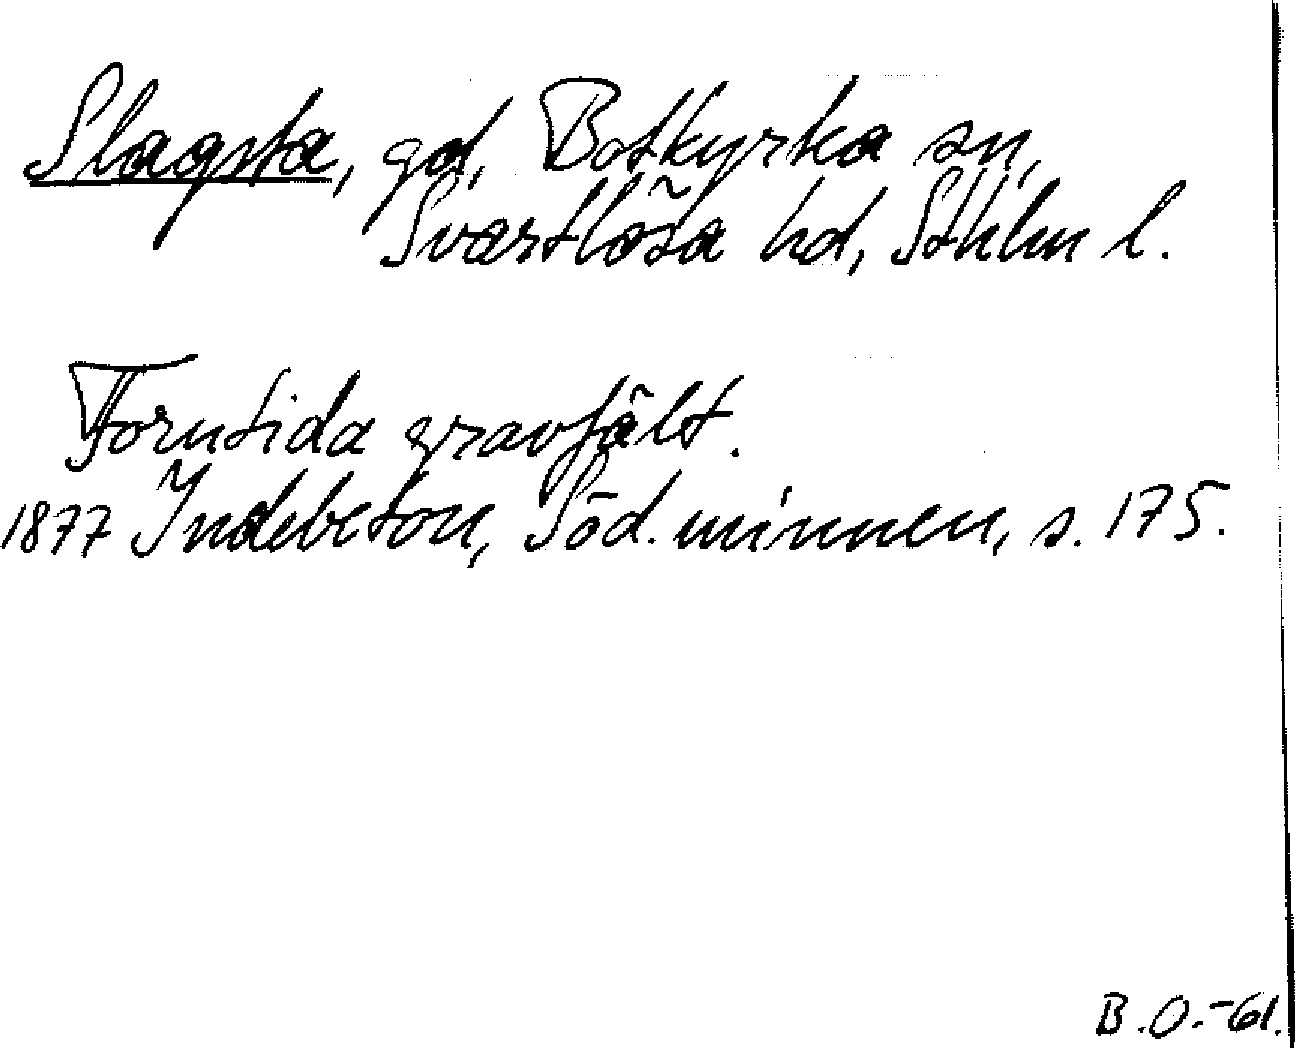 Slagsta, gd, Botkyrka sn,
Svartlösa hd, Sthlm l.
Forntida gravfält.
1877 Indebetou, Söd. minnen, s. 175.
B.O.-61.